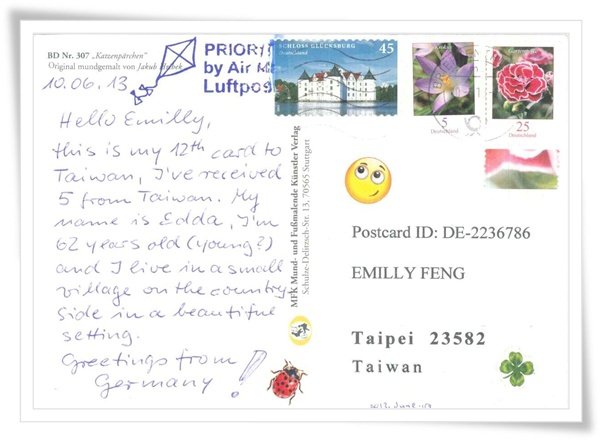 BD Nr. 307 „Katzenpärchen"
Original mundgemalt von Jakub
10.06.13
PRIORIT
by Air M
Luftpos
SCHLOSS GLÜCKSBURG
Deutschland
45
5
Deutschland
Gartennelke
25
Deutschland
Hello Emilly,
this is my 12th card to
Taiwan, I've received
5 from Taiwan. My
name is Edda, I'm
62 years old (young?)
and I live in a small
village on the country
side in a beautiful
setting.
Greetings from
Germany!
MFK Mund- und Fußmalende Künstler Verlag
Schulze-Delitzsch-Str. 13, 70565 Stuttgart
Postcard ID: DE-2236786
EMILLY FENG
Taipei 23582
Taiwan